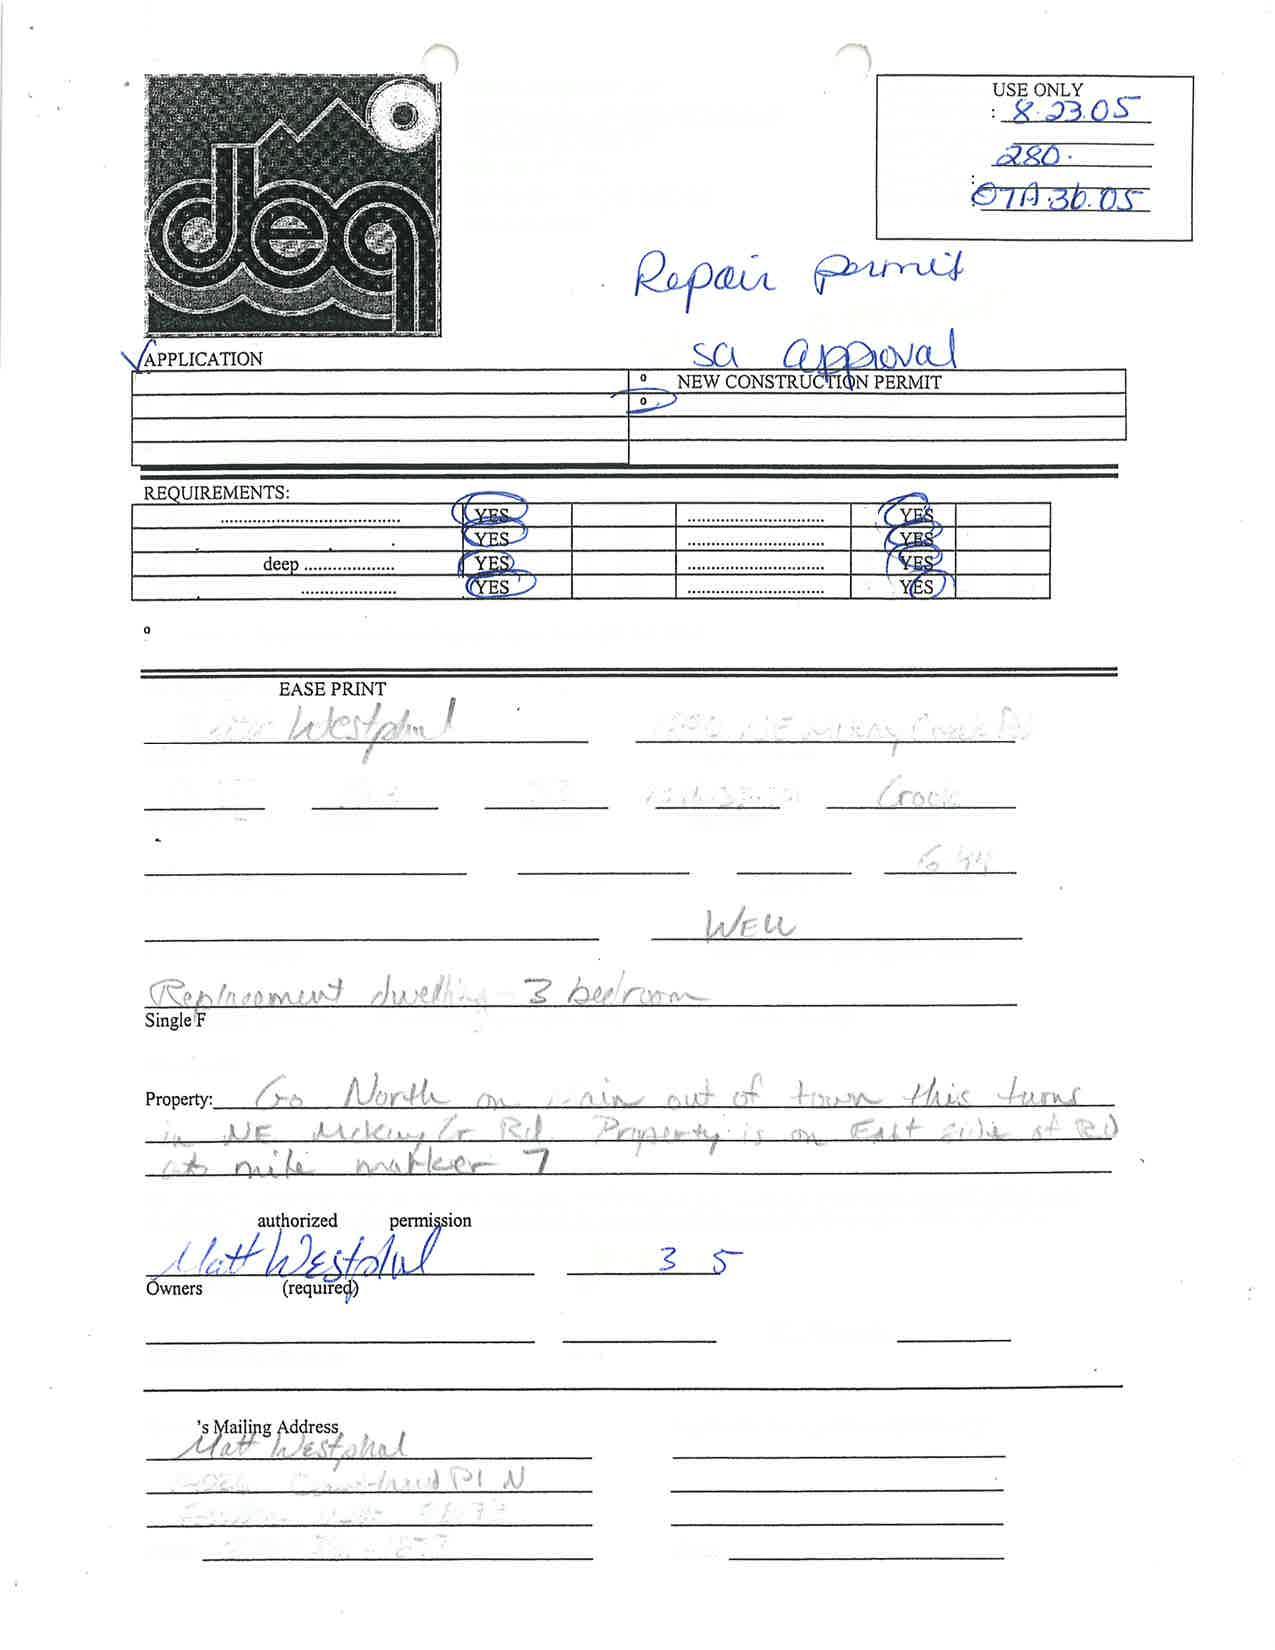 deq
USE ONLY
: 8.23.05
280.
: 07A.36.05
Repair permit
sa approval
APPLICATION
o NEW CONSTRUCTION PERMIT
o
REQUIREMENTS:
........................................ YES ............................ YES
YES ............................ YES
deep .................... YES ............................ YES
..................... YES ............................ YES
o
EASE PRINT
Westphal NE Creek Rd
Crook
WELL
Replacement dwelling - 3 bedroom
Single F
Property: Go North on main out of town this turns
in NE McKay Cr Rd. Property is on East side of RD
at mile marker 7
authorized permission
Matt Westphal 3 5
Owners (required)
's Mailing Address
Matt Westphal
Pl N